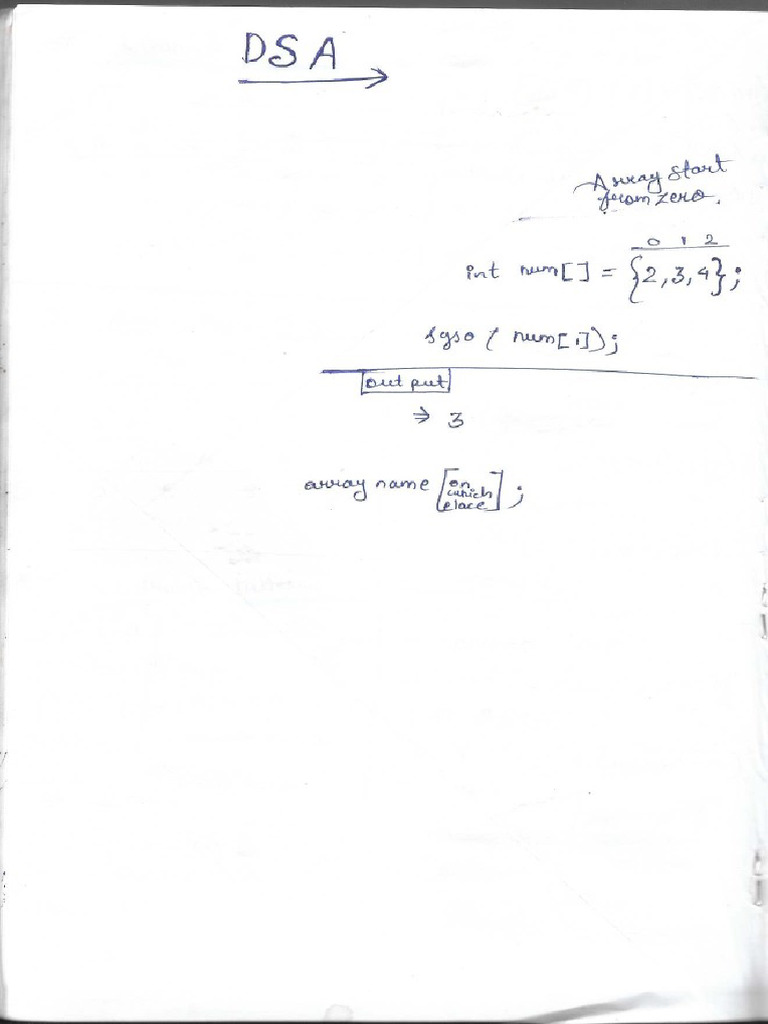 DSA
Array start
from zero.
0 1 2
int num[] = {2,3,4};
syso ( num[1]);
output
⇒ 3
array name [on
which
place] ;